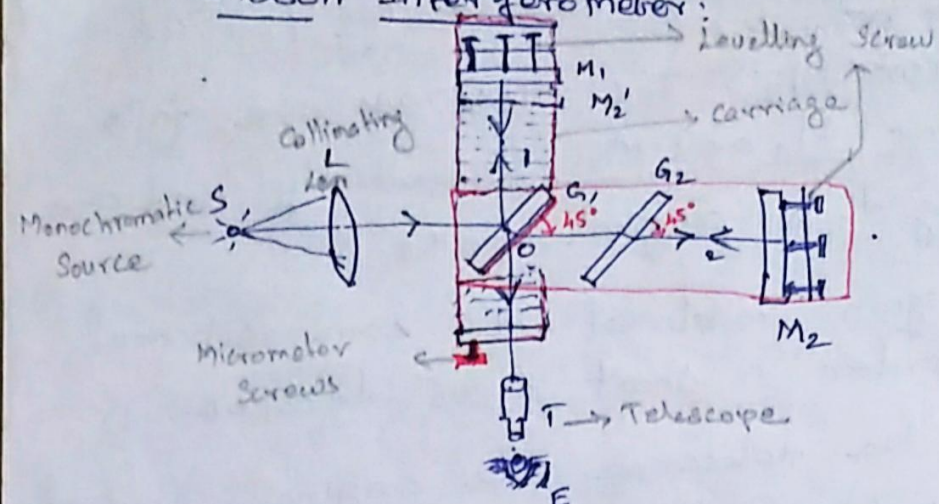 Interferometer:
Levelling Screw
M₁
M₂'
Carriage
Collimating
L
Len
1
G₁
G₂
S
45°
45°
Monochromatic
Source
O
2
M₂
Micrometer
Screws
T → Telescope
E